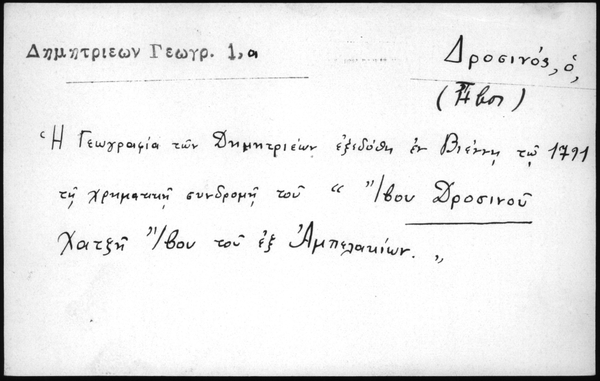 Δημητριεων Γεωγρ. 1,α
Δροσινός, ὁ,
(Ἤβοι)
Ἡ Γεωγραφία τῶν Δημητριέων ἐξεδόθη ἐν Βιέννῃ τῷ 1791
τῇ χρηματικῇ συνδρομῇ τοῦ “ Ἤβου Δροσινοῦ
Χατζῆ Ἤβου τοῦ ἐξ Ἀμπελακίων. „